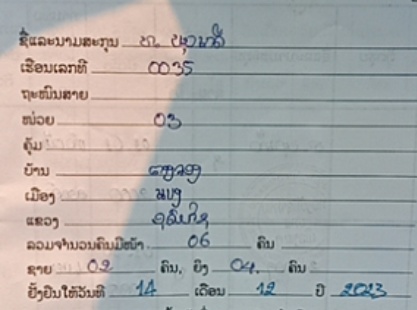 ຊື່ແລະນາມສະກຸນ ທ.
ເຮືອນເລກທີ 0035
ຖະໜົນສາຍ
ໜ່ວຍ 03
ຄຸ້ມ
ບ້ານ
ເມືອງ
ແຂວງ
ລວມຈຳນວນຄົນມີໜ້າ 06 ຄົນ
ຊາຍ 02 ຄົນ, ຍິງ 04 ຄົນ
ຢັ້ງຢືນໃຫ້ວັນທີ 14 ເດືອນ 12 ປີ 2023